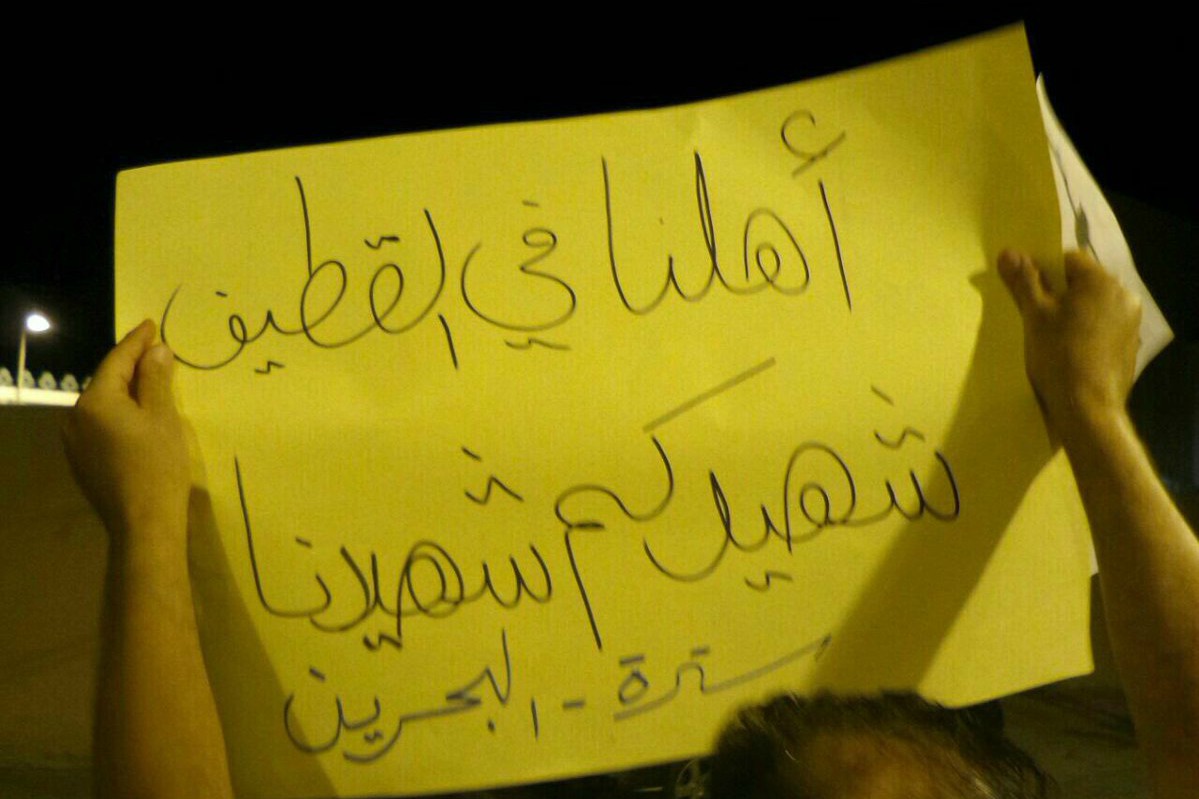 أهلنا في القطيف
شهيدكم شهيدنا
سترة - البحرين